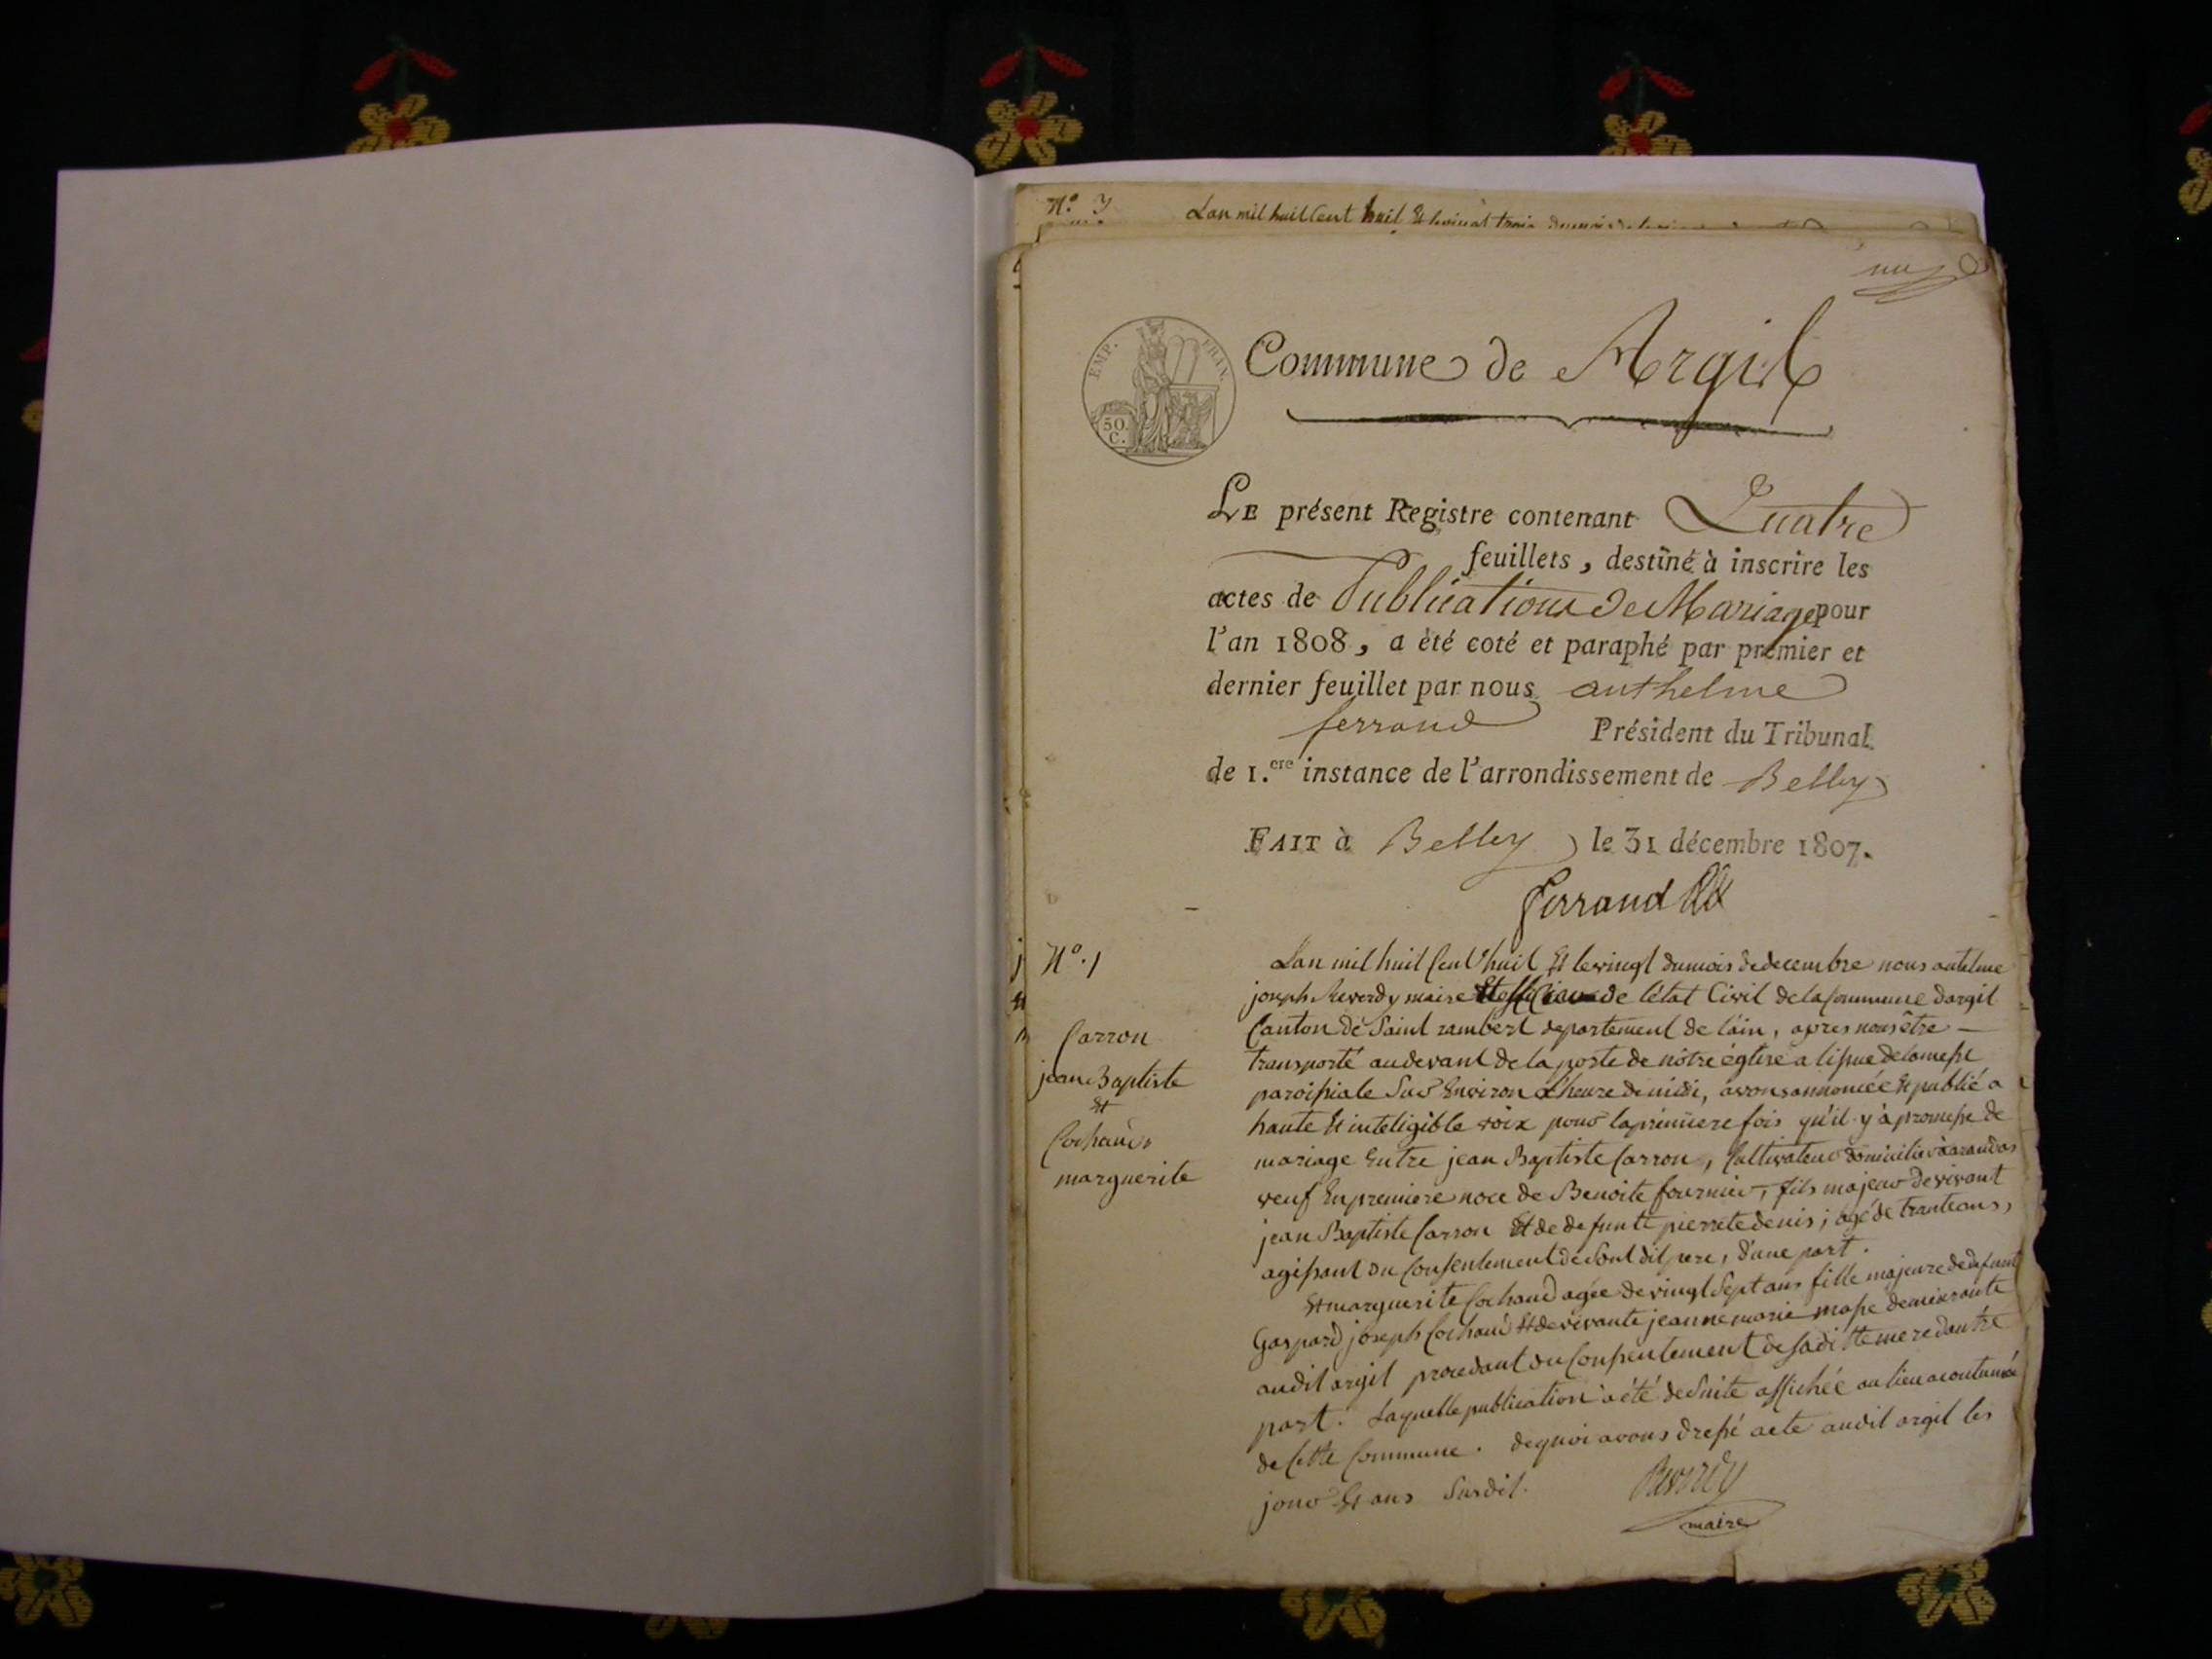 N.º 3
Lan mil huit Cent huit Et le vingt trois du mois de
EMP. FRAN.
50. C.
Commune de Argil
LE présent Registre contenant Quatre
feuillets, destiné à inscrire les
actes de Publications de Mariage pour
l'an 1808, a été coté et paraphé par premier et
dernier feuillet par nous anthelme
ferrand Président du Tribunal
de 1.ere instance de l'arrondissement de Belley
FAIT à Belley le 31 décembre 1807.
Ferrand
N.º 1
Carron
jean Baptiste
Et
Cochaud
marguerite
Lan mil huit Cent huit Et le vingt du mois de decembre nous antelme
joseph Reverdy maire Et officier de l'état Civil de la Commune dargil
Canton de Saint rambert departement de l'ain, apres nous être
transporté au devant de la porte de nôtre église a lissue de la messe
paroissiale Sur Environ L'heure de midi, avons annoncée Et publié a
haute Et inteligible voix pour la premiere fois qu'il y à promesse de
mariage Entre jean Baptiste Carron, Cultivateur domicilié à arandas
veuf En premiere noce de Benoite fournier, fils majeur de vivant
jean Baptiste Carron Et de defunte pierrete denis; agé de trante ans,
agissant du Consentement de Sont dit pere, d'une part.
Et marguerite Cochaud agée de vingt Sept ans fille majeure de defunt
Gaspard joseph Cochaud Et de vivante jeanne marie masse demeurante
audit argil procedant du Consentement de Sa ditte mere dautre
part. Laquelle publication à été de Suite affichée au lieu acoutumée
de Cette Commune. de quoi avons dressé acte audit argil les
jour Et ans Susdit.
Reverdy
maire